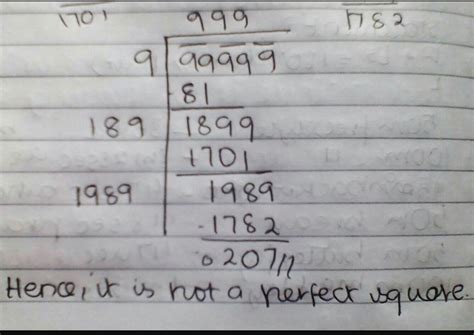 1701 999 1782
9 99999
81
189 1899
1701
1989 1989
-1782
0207//
Hence, it is not a perfect square.